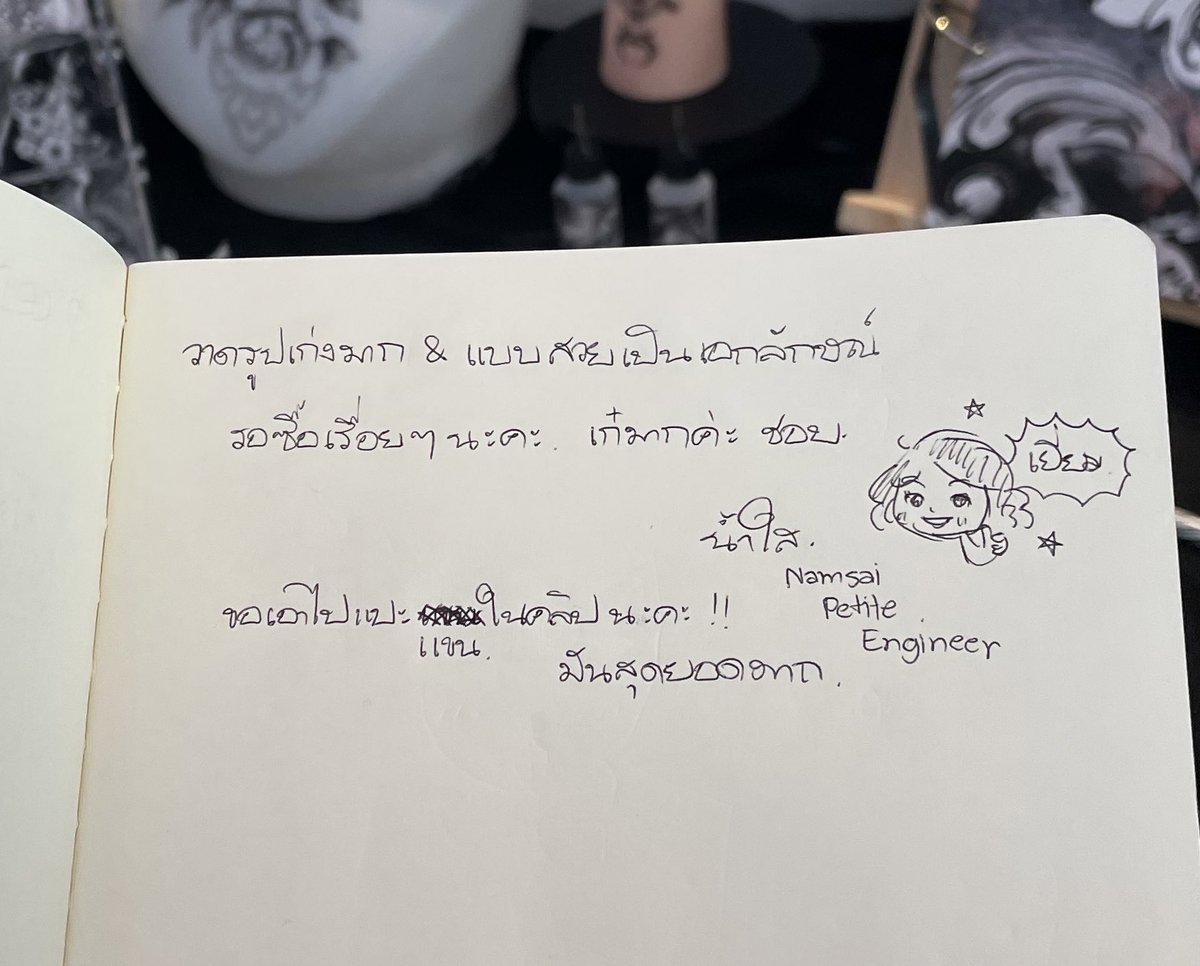 วาดรูปเก่งมาก & แบบสวยเป็นเอกลักษณ์
รอซื้อเรื่อยๆ นะคะ. เก๋มากค่ะ ชอบ.
เยี่ยม
น้ำใส.
Namsai
Petite
Engineer
ขอเอาไปแปะ ในคลิปนะคะ !!
แขน.
มันสุดยอดมาก.